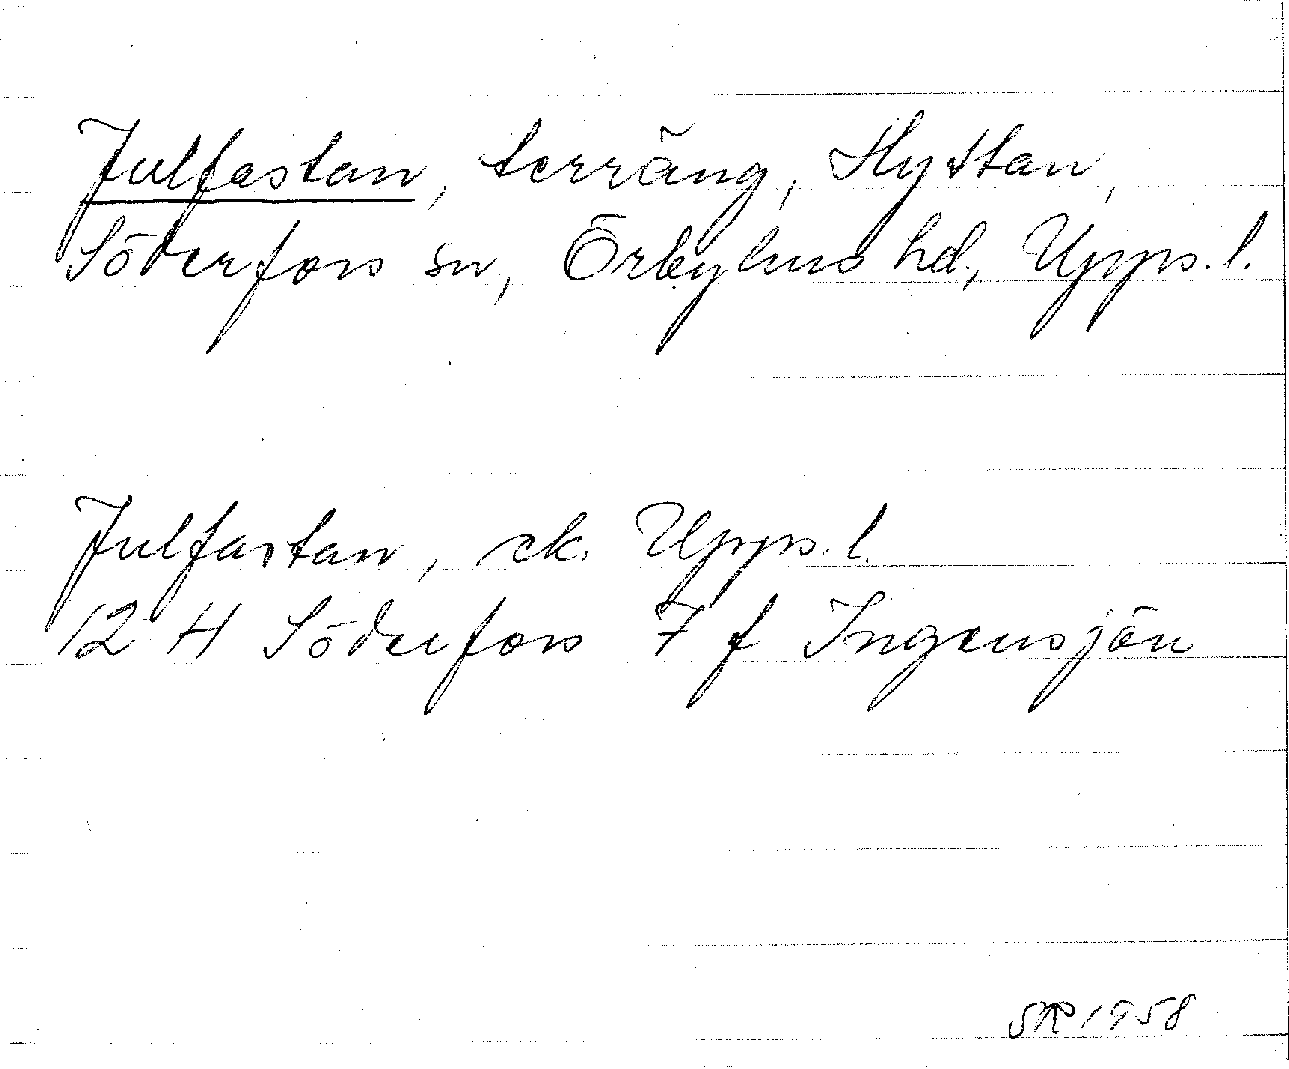 Julfastan, terräng, Hyttan,
Söderfors sn, Örbyhus hd, Upps. l.
Julfastan, ek. Upps. l.
12 H Söderfors 7 f Ingensjön
SR 1958